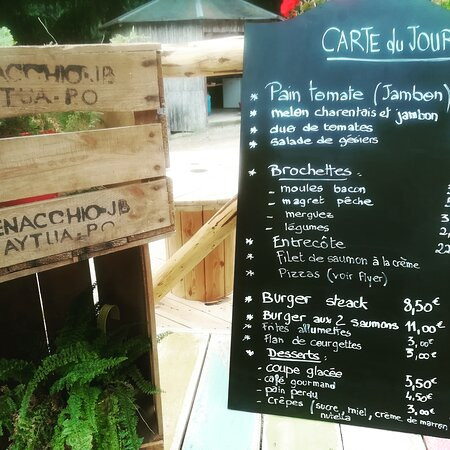 ENACCHIO-JB
AYTUA-PO
ENACCHIO-JB
AYTUA-PO
CARTE du JOUR
* Pain tomate (Jambon)
* melon charentais et jambon
* duo de tomates
* salade de gésiers
* Brochettes :
- moules bacon
- magret pêche
- merguez
- légumes
* Entrecôte
* Filet de saumon à la crème
* Pizzas (voir flyer)
* Burger steack 8,50€
* Burger aux 2 saumons 11,00€
* Frites allumettes 3,00€
* Flan de courgettes 3,00€
* Desserts :
- coupe glacée 5,50€
- café gourmand 4,50€
- pain perdu 3,00€
- Crêpes (sucre, miel, crème de marron
nutella